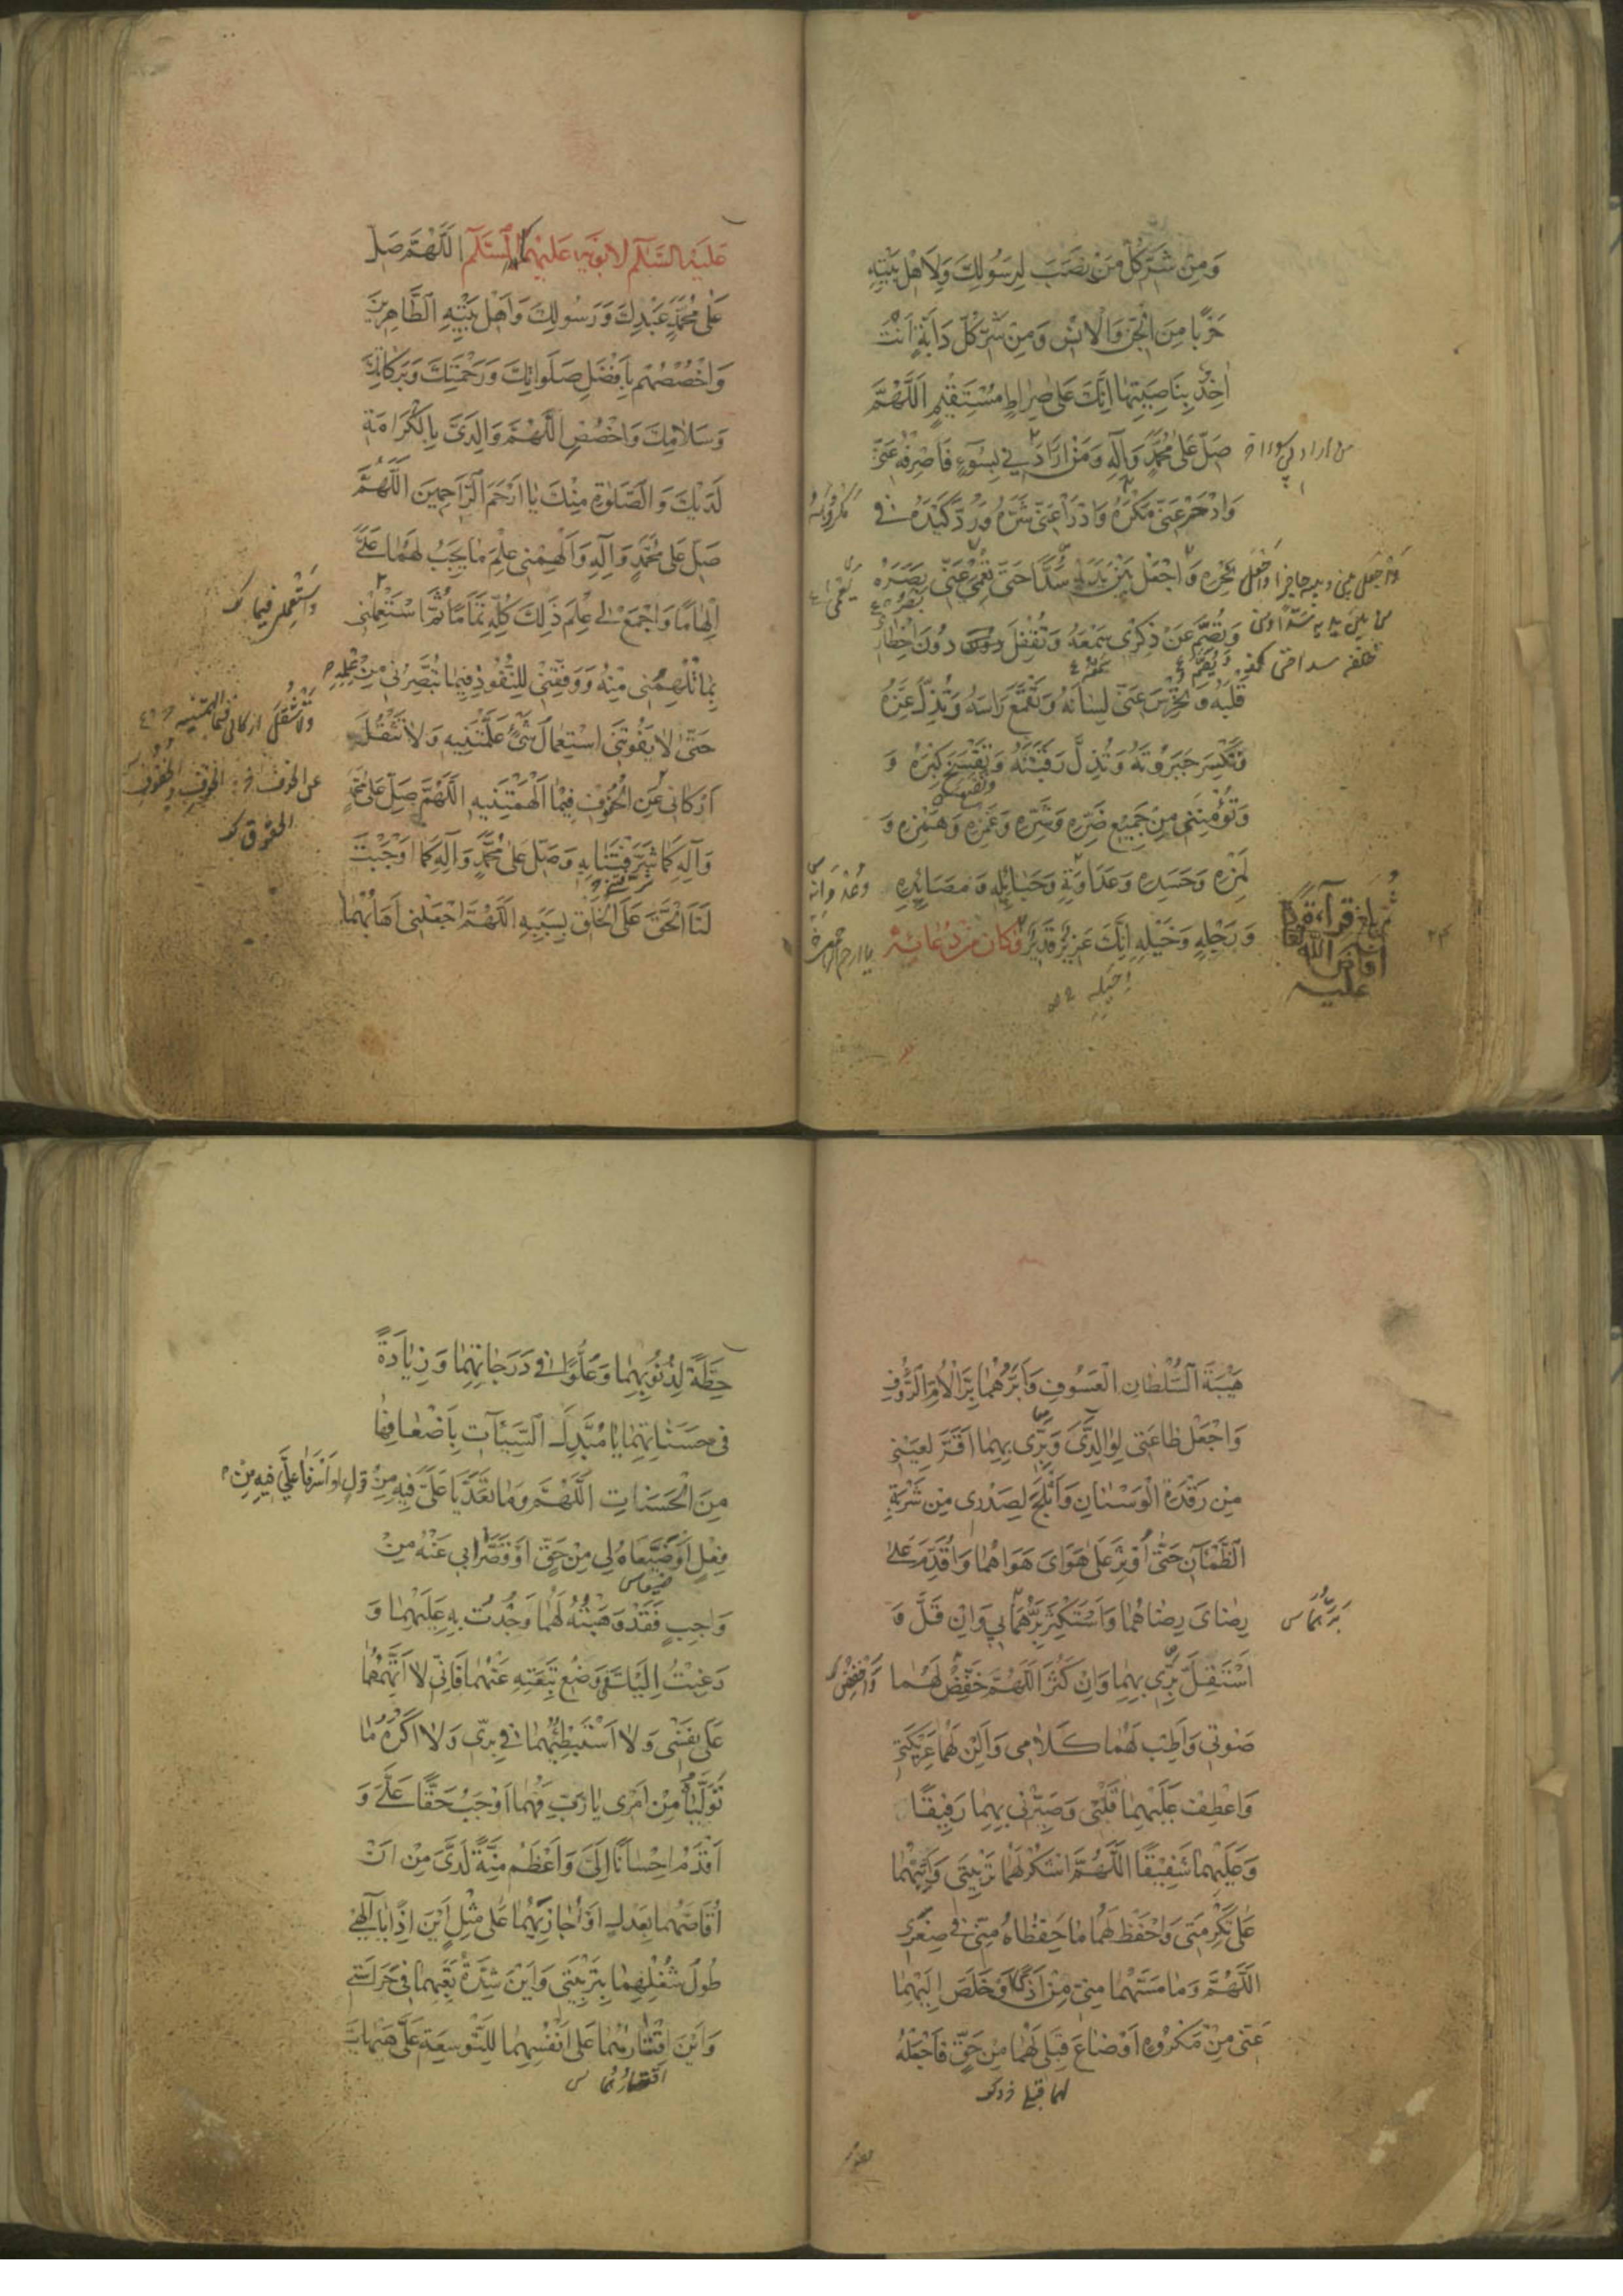 وَمِنْ شَرِّ كُلِّ مَنْ نَصَبَ لِرَسُولِكَ وَلِاَهْلِ بَيْتِهِ
حَرْبًا مِنَ الْجِنِّ وَالْاِنْسِ وَمِنْ شَرِّ كُلِّ دَابَّةٍ اَنْتَ
اٰخِذٌ بِنَاصِيَتِهَا اِنَّكَ عَلٰى صِرَاطٍ مُسْتَقِيْمٍ اَللّٰهُمَّ
صَلِّ عَلٰى مُحَمَّدٍ وَآلِهِ وَمَنْ اَرَادَنِي بِسُوْءٍ فَاصْرِفْهُ عَنِّي
وَادْحَرْ عَنِّي مَكْرَهُ وَادْرَأْ عَنِّي شَرَّهُ وَرُدَّ كَيْدَهُ فِي
نَحْرِهِ وَاجْعَلْ بَيْنَ يَدَيْهِ سُدًّا حَتّٰى تُعْمِيَ عَنِّي بَصَرَهُ
وَتُصِمَّ عَنْ ذِكْرِي سَمْعَهُ وَتُقْفِلَ دُونَ اِخْطَارِ
قَلْبَهُ وَتُخْرِسَ عَنِّي لِسَانَهُ وَتَقْمَعَ رَاسَهُ وَتُذِلَّ عِزَّهُ
وَتَكْسِرَ جَبَرُوتَهُ وَتُذِلَّ رَقَبَتَهُ وَتَفْسَخَ كِبْرَهُ وَ
وَتُؤْمِنَنِي مِنْ جَمِيْعِ ضَرِّهِ وَشَرِّهِ وَغَمْزِهِ وَهَمْزِهِ وَ
لَمْزِهِ وَحَسَدِهِ وَعَدَاوَتِهِ وَحَبَائِلِهِ وَمَصَائِدِهِ
وَرَجْلِهِ وَخَيْلِهِ اِنَّكَ عَزِيْزٌ قَدِيْرٌ وَكَانَ مِنْ دُعَائِهِ
عَلَيْهِ السَّلَامُ لِاَبَوَيْهِ عَلَيْهِمَا السَّلَامُ اَللّٰهُمَّ صَلِّ
عَلٰى مُحَمَّدٍ عَبْدِكَ وَرَسُولِكَ وَاَهْلِ بَيْتِهِ الطَّاهِرِيْنَ
وَاخْصُصْهُمْ بِاَفْضَلِ صَلَوَاتِكَ وَرَحْمَتِكَ وَبَرَكَاتِكَ
وَسَلَامِكَ وَاخْصُصِ اللّٰهُمَّ وَالِدَيَّ بِالْكَرَامَةِ
لَدَيْكَ وَالصَّلٰوةِ مِنْكَ يَا اَرْحَمَ الرَّاحِمِيْنَ اَللّٰهُمَّ
صَلِّ عَلٰى مُحَمَّدٍ وَآلِهِ وَاَلْهِمْنِي عِلْمَ مَا يَجِبُ لَهُمَا عَلَيَّ
اِلْهَامًا وَاجْمَعْ لِي عِلْمَ ذٰلِكَ كُلِّهِ تَمَامًا ثُمَّ اسْتَعْمِلْنِي
بِمَا تُلْهِمُنِي مِنْهُ وَوَفِّقْنِي لِلنُّفُوذِ فِيْمَا تُبَصِّرُنِي مِنْ عِلْمِهِ
حَتّٰى لَا يَفُوتَنِي اسْتِعْمَالُ شَيْءٍ عَلَّمْتَنِيهِ وَلَا تَثْقُلَ
اَرْكَانِي عَنِ الْحُفُوفِ فِيْمَا اَلْهَمْتَنِيهِ اَللّٰهُمَّ صَلِّ عَلٰى مُحَمَّدٍ
وَآلِهِ كَمَا شَرَّفْتَنَا بِهِ وَصَلِّ عَلٰى مُحَمَّدٍ وَآلِهِ كَمَا اَوْجَبْتَ
لَنَا الْحَقَّ عَلَى الْخَلْقِ بِسَبَبِهِ اَللّٰهُمَّ اجْعَلْنِي اَهَابُهُمَا
هَيْبَةَ السُّلْطَانِ الْعَسُوفِ وَاَبَرُّهُمَا بِرَّ الْاُمِّ الرَّؤُفِ
وَاجْعَلْ طَاعَتِي لِوَالِدَيَّ وَبِرِّي بِهِمَا اَقَرَّ لِعَيْنِي
مِنْ رَقْدَةِ الْوَسْنَانِ وَاَثْلَجَ لِصَدْرِي مِنْ شَرْبَةِ
الظَّمْآنِ حَتّٰى اُوْثِرَ عَلٰى هَوَايَ هَوَاهُمَا وَاُقَدِّمَ عَلٰى
رِضَايَ رِضَاهُمَا وَاَسْتَكْثِرَ بِرَّهُمَا بِي وَاِنْ قَلَّ وَ
اَسْتَقِلَّ بِرِّي بِهِمَا وَاِنْ كَثُرَ اَللّٰهُمَّ خَفِّضْ لَهُمَا
صَوْتِي وَاَطِبْ لَهُمَا كَلَامِي وَاَلِنْ لَهُمَا عَرِيْكَتِي
وَاعْطِفْ عَلَيْهِمَا قَلْبِي وَصَيِّرْنِي بِهِمَا رَفِيْقًا
وَعَلَيْهِمَا شَفِيْقًا اَللّٰهُمَّ اشْكُرْ لَهُمَا تَرْبِيَتِي وَاَثِبْهُمَا
عَلٰى تَكْرِمَتِي وَاحْفَظْ لَهُمَا مَا حَفِظَاهُ مِنِّي فِي صِغَرِي
اَللّٰهُمَّ وَمَا مَسَّهُمَا مِنِّي مِنْ اَذًى اَوْ خَلَصَ اِلَيْهِمَا
عَنِّي مِنْ مَكْرُوهٍ اَوْ ضَاعَ قِبَلِي لَهُمَا مِنْ حَقٍّ فَاجْعَلْهُ
حِطَّةً لِذُنُوبِهِمَا وَعُلُوًّا فِي دَرَجَاتِهِمَا وَزِيَادَةً
فِي حَسَنَاتِهِمَا يَا مُبَدِّلَ السَّيِّئَاتِ بِاَضْعَافِهَا
مِنَ الْحَسَنَاتِ اَللّٰهُمَّ وَمَا تَعَدَّيَا عَلَيَّ فِيهِ مِنْ قَوْلٍ اَوْ اَسْرَفَا عَلَيَّ فِيهِ مِنْ
فِعْلٍ اَوْ ضَيَّعَاهُ لِي مِنْ حَقٍّ اَوْ قَصَّرَا بِي عَنْهُ مِنْ
وَاجِبٍ فَقَدْ وَهَبْتُهُ لَهُمَا وَجُدْتُ بِهِ عَلَيْهِمَا وَ
رَغِبْتُ اِلَيْكَ فِي وَضْعِ تَبِعَتِهِ عَنْهُمَا فَاِنِّي لَا اَتَّهِمُهُمَا
عَلٰى نَفْسِي وَلَا اَسْتَبْطِئُهُمَا فِي بِرِّي وَلَا اَكْرَهُ مَا
تَوَلَّيَاهُ مِنْ اَمْرِي يَا رَبِّ فَهُمَا اَوْجَبُ حَقًّا عَلَيَّ وَ
اَقْدَمُ اِحْسَانًا اِلَيَّ وَاَعْظَمُ مِنَّةً لَدَيَّ مِنْ اَنْ
اُقَاصَّهُمَا بِعَدْلٍ اَوْ اُجَازِيَهُمَا عَلٰى مِثْلٍ اَيْنَ اِذًا يَا اِلٰهِي
طُولُ شُغْلِهِمَا بِتَرْبِيَتِي وَاَيْنَ شِدَّةُ تَعَبِهِمَا فِي حِرَاسَتِي
وَاَيْنَ اِقْتَارُهُمَا عَلٰى اَنْفُسِهِمَا لِلتَّوْسِعَةِ عَلَيَّ هَيْهَاتَ